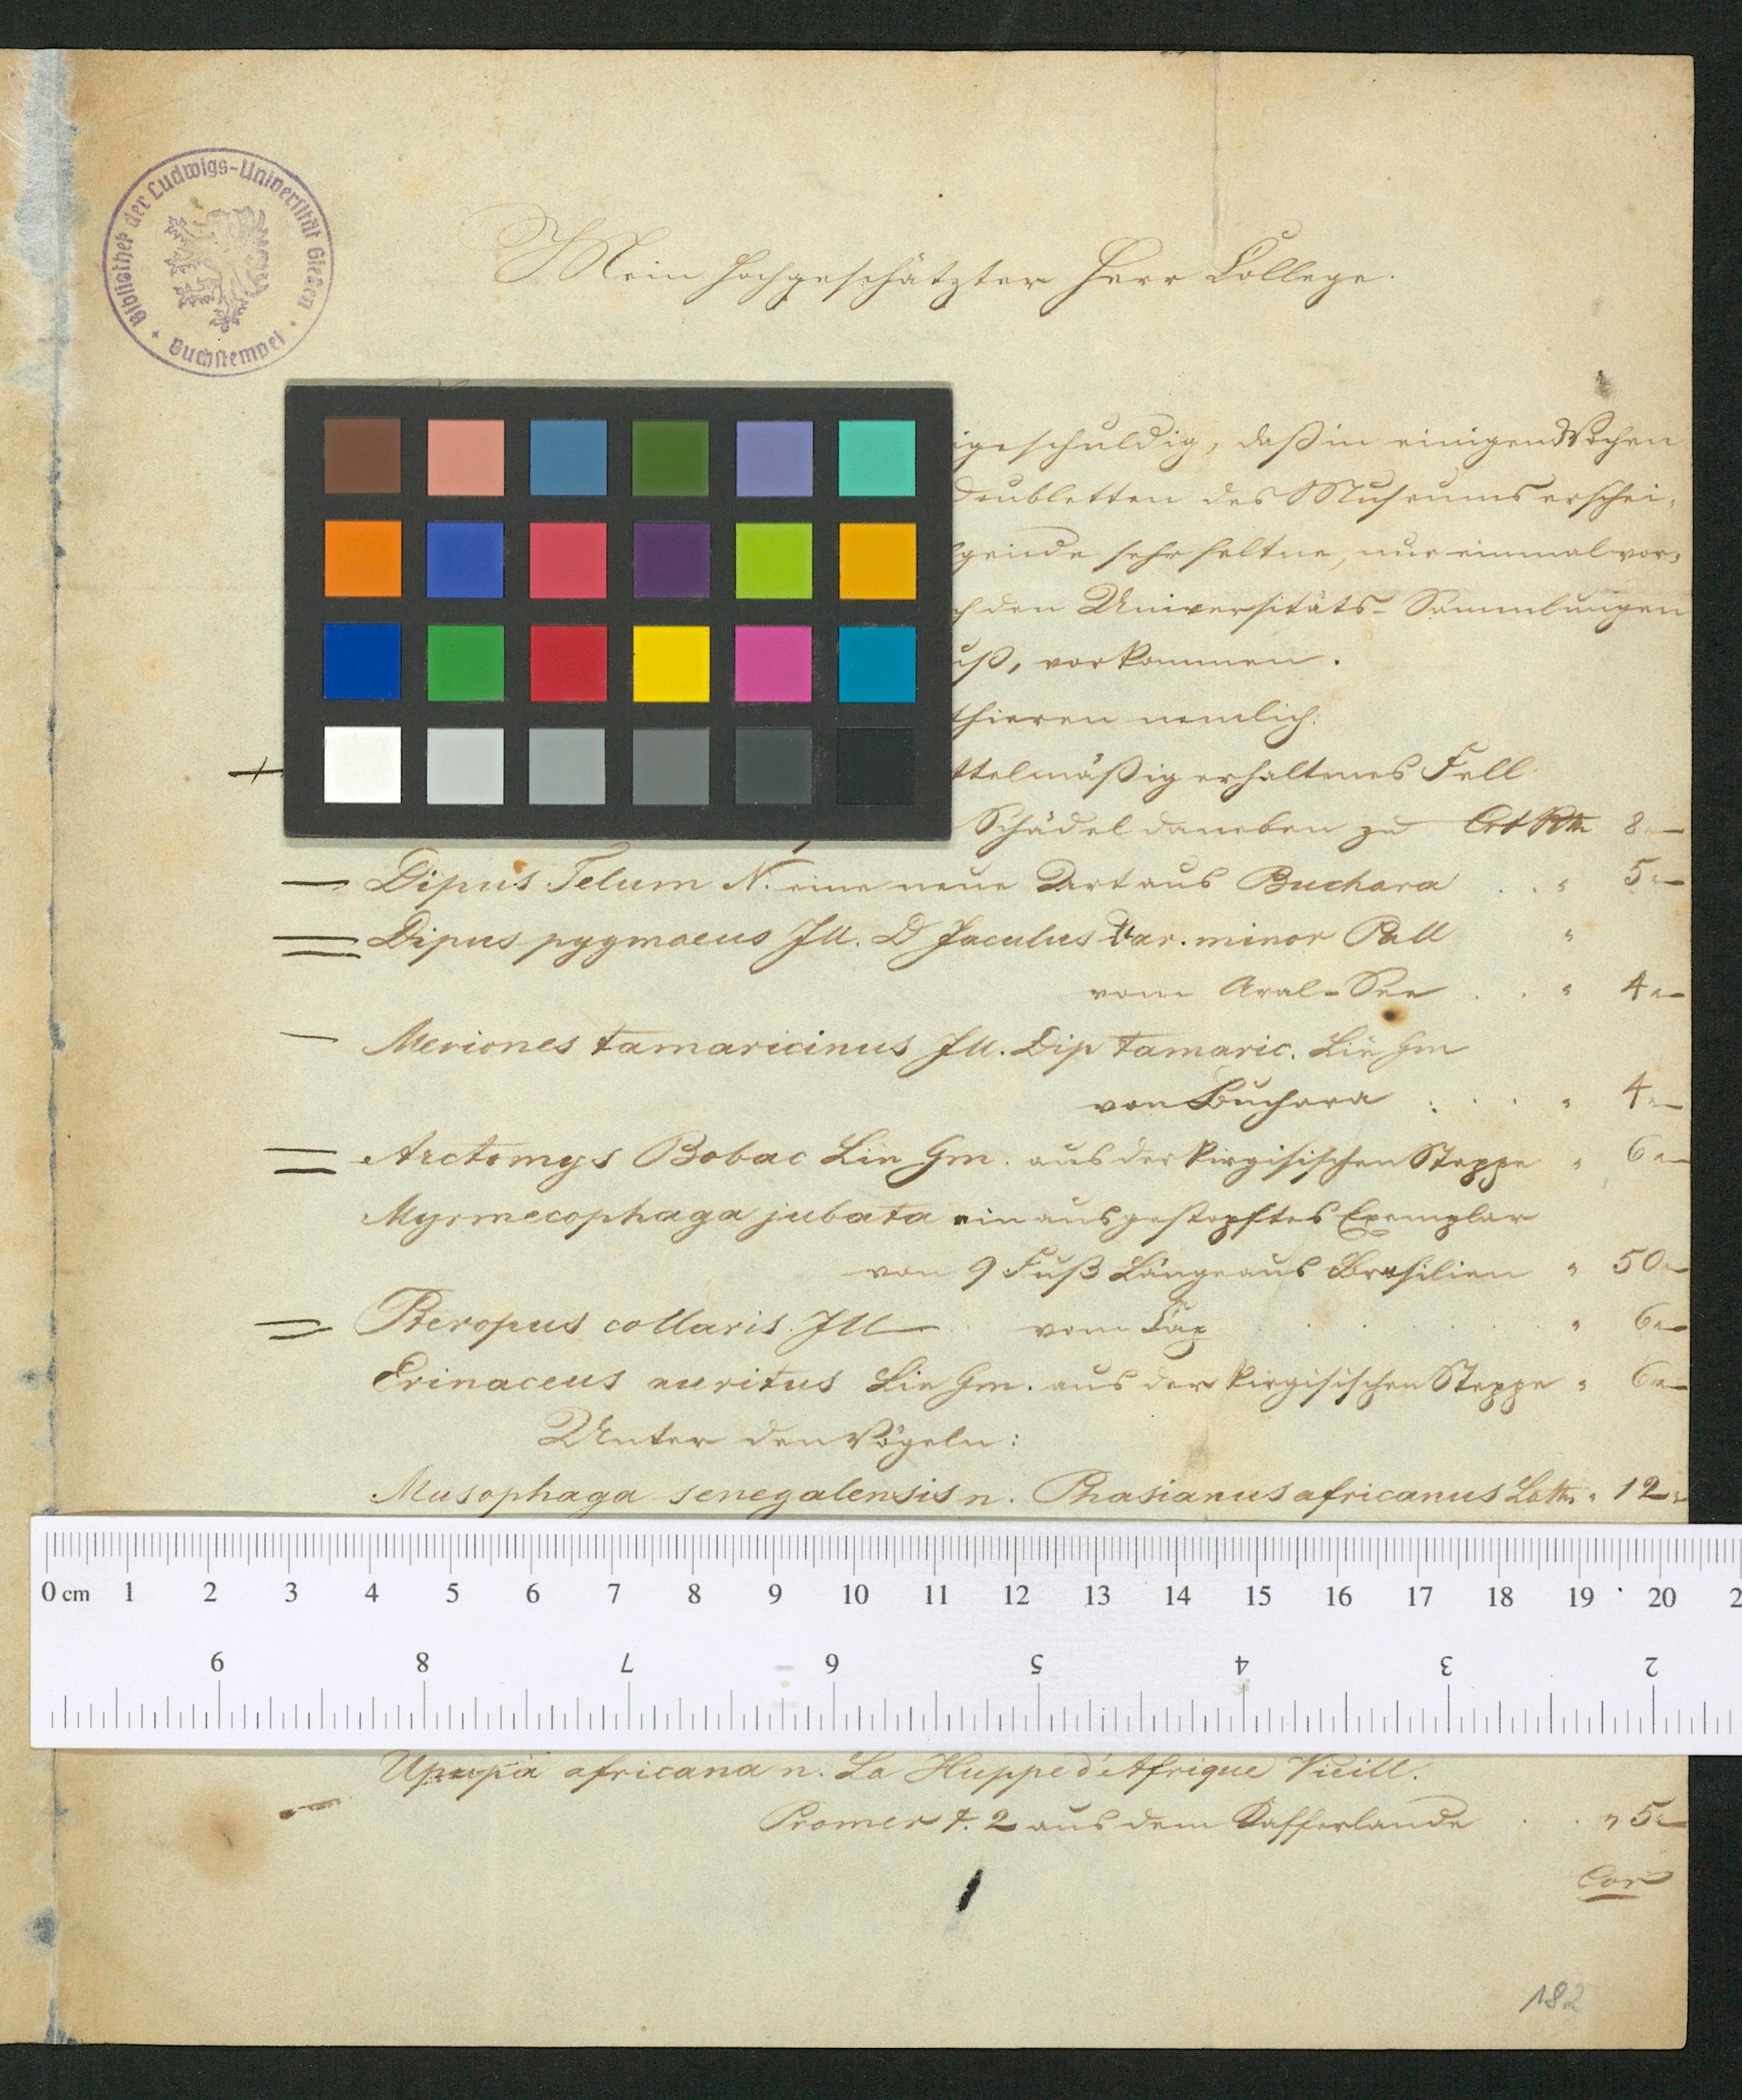 Bibliothek der Ludwigs-Universität Gießen
Buchstempel
Mein hochgeschätzter Herr College.
schuldig, daß in einigen Wochen
Doubletten des Museums erschei-
sehr seltne, nur einmal vor-
den Universitäts-Sammlungen
vorkommen.
thieren nemlich:
ttelmäßig erhaltenes Fell
Schädel daneben zu Crt Rth 8 —
Dipus Telum N. eine neue Art aus Buchara . . " 5 —
Dipus pygmaeus Ill. D Jaculus Var. minor Pall "
vom Aral-See . . " 4 —
Meriones tamaricinus Ill. Dip tamaric. Lin Gm
von Buchara . . . " 4 —
Arctomys Bobac Lin Gm. aus der kirgisischen Steppe " 6 —
Myrmecophaga jubata ein ausgestopftes Exemplar
von 9 Fuß Länge aus Brasilien " 50 —
Pteropus collaris Ill vom Cap . . . . " 6 —
Erinaceus auritus Lin Gm. aus der kirgisischen Steppe " 6 —
Unter den Vögeln:
Musophaga senegalensis n. Phasianus africanus Lath. " 12 —
0 cm 1 2 3 4 5 6 7 8 9 10 11 12 13 14 15 16 17 18 19 20 2
9 8 7 6 5 4 3 2
Upupa africana n. La Huppe d'Afrique Vieill.
Promer t. 2 aus dem Kafferlande . . " 5 —
Cor
182